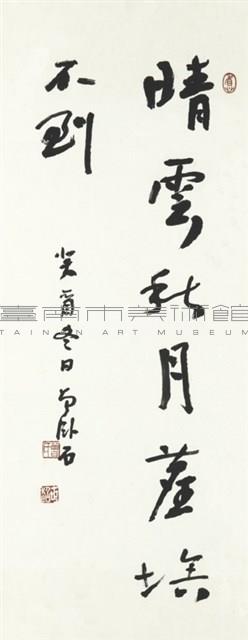 晴雲秋月塵埃
不到
癸酉冬日曾臥石
臺南市美術館
TAINAN ART MUSEUM